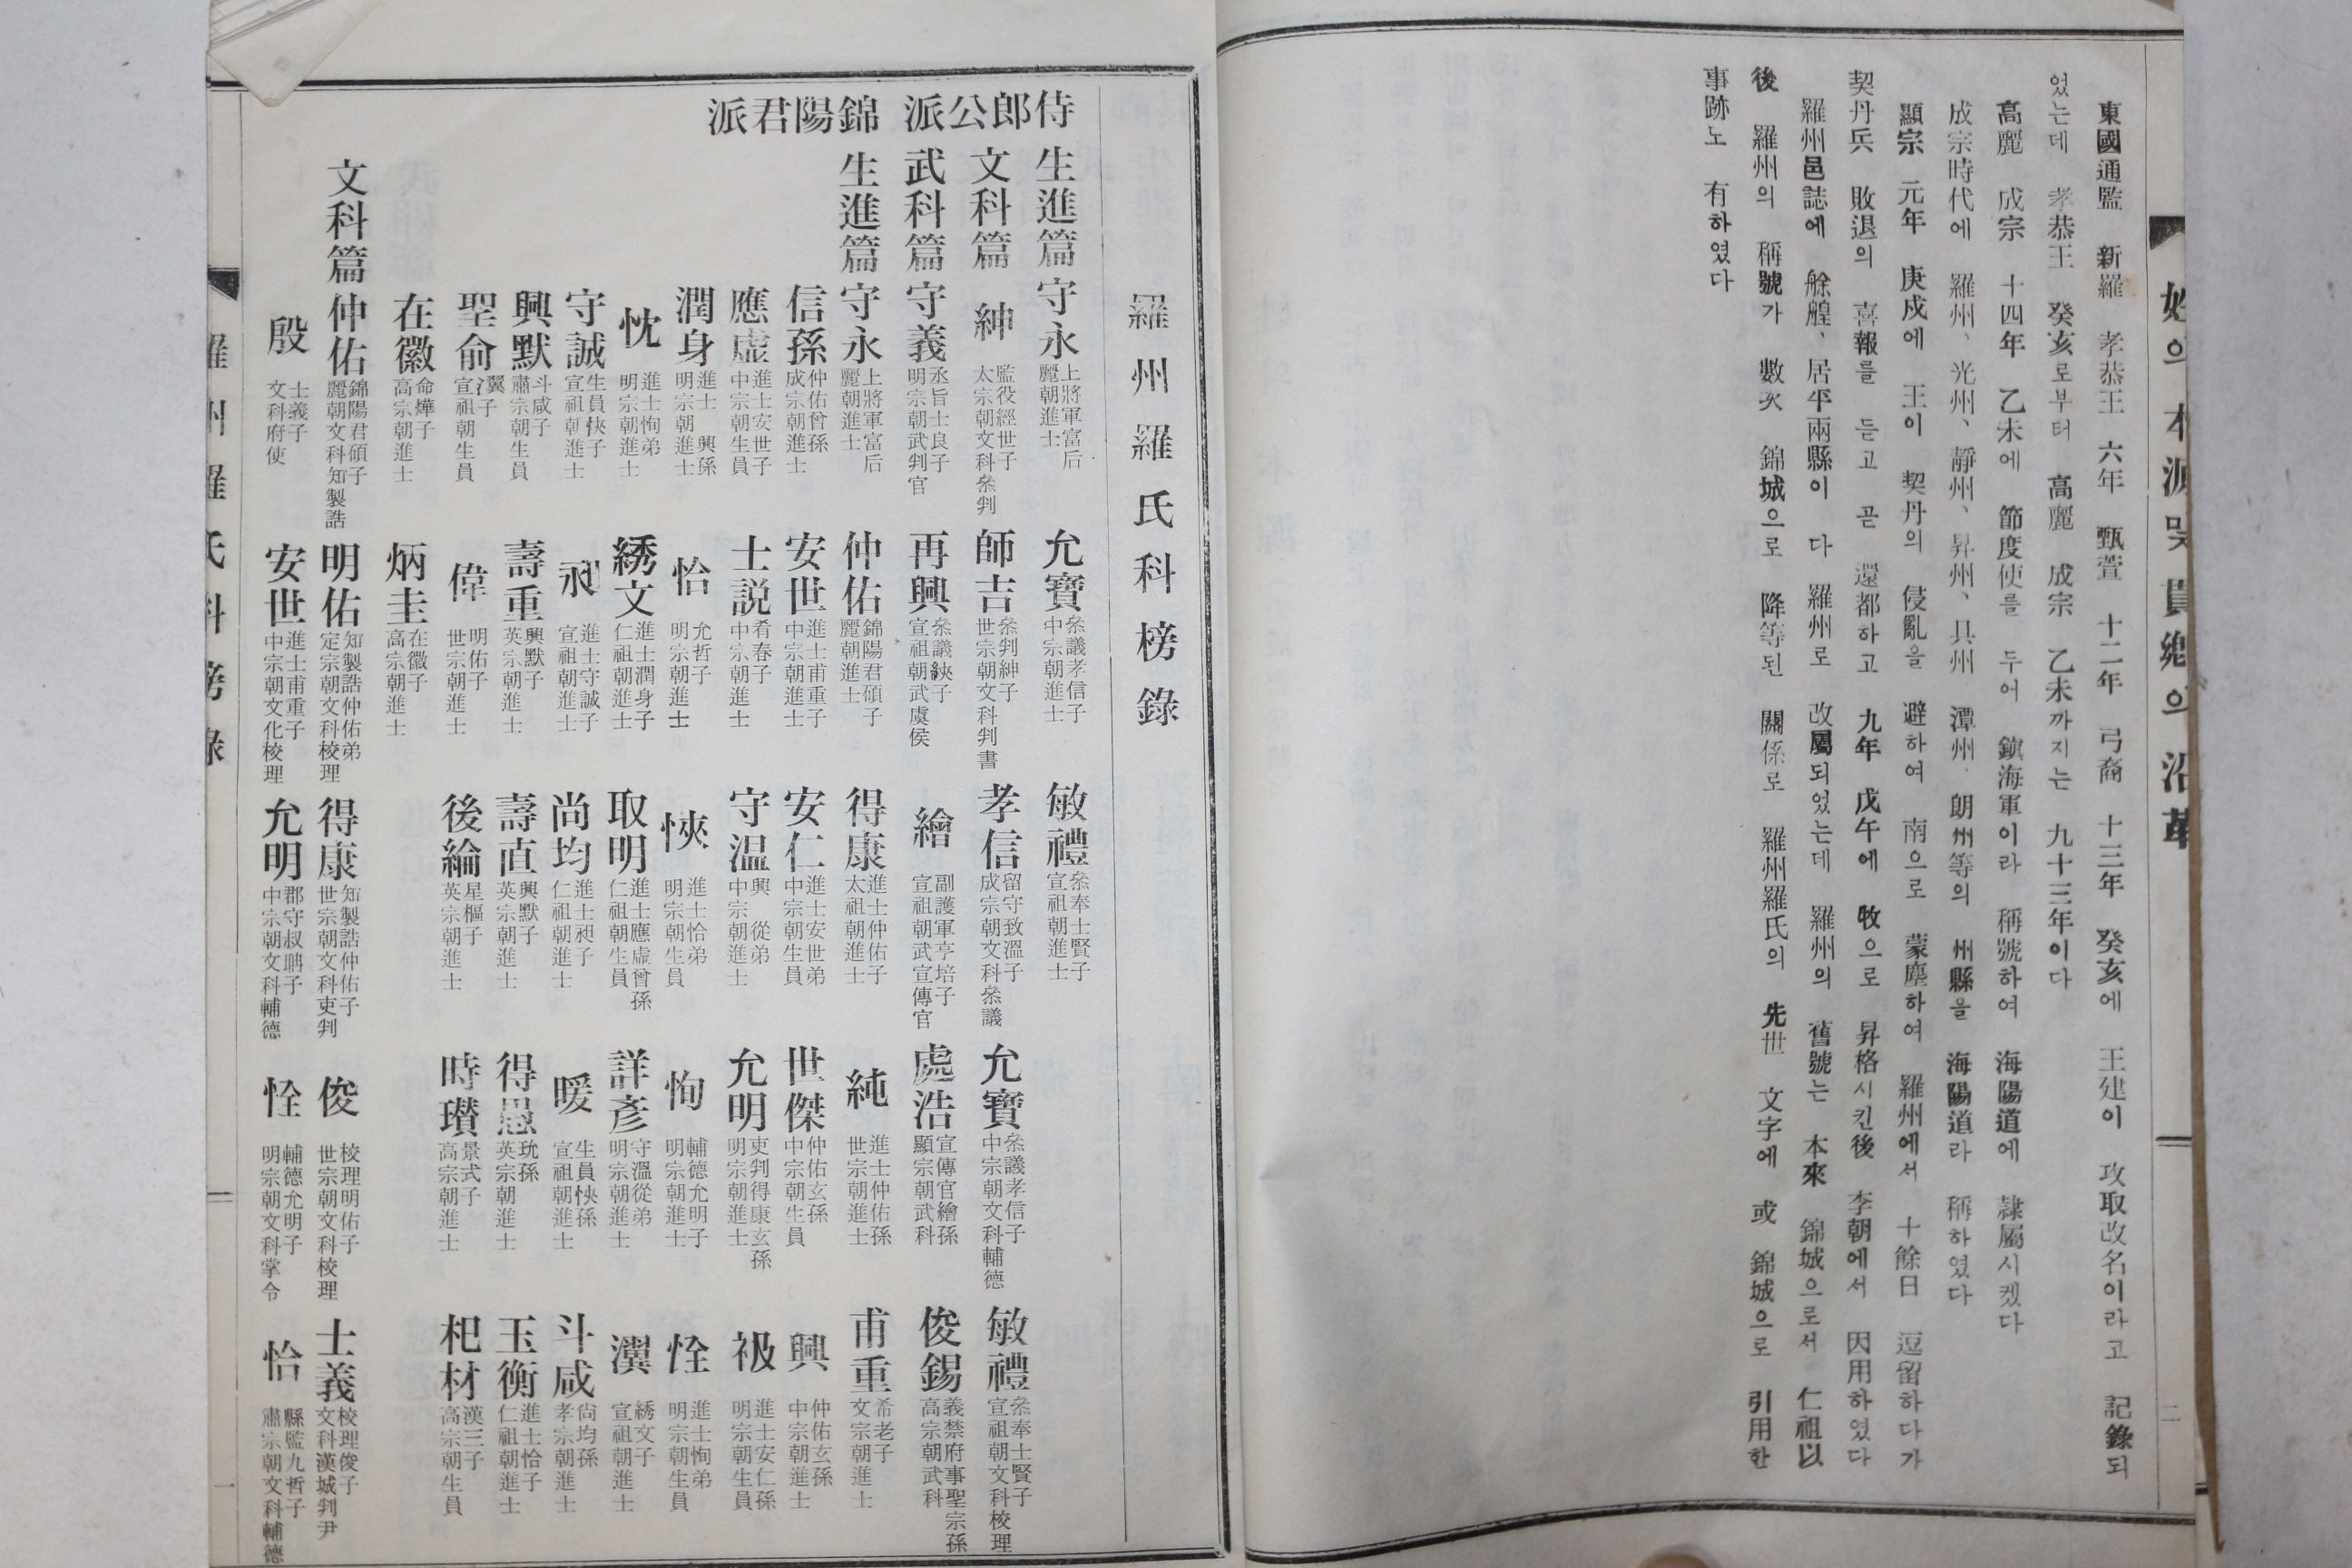 姓의 本源 및 貫鄕의 沿革
東國通監 新羅 孝恭王 六年 甄萱 十二年 弓裔 十三年 癸亥에 王建이 攻取改名이라고 記錄되
었는데 孝恭王 癸亥로부터 高麗 成宗 乙未까지는 九十三年이다
高麗 成宗 十四年 乙未에 節度使를 두어 鎭海軍이라 稱號하여 海陽道에 隷屬시켰다
成宗時代에 羅州、光州、靜州、昇州、具州 潭州、朗州等의 州縣을 海陽道라 稱하였다
顯宗 元年 庚戍에 王이 契丹의 侵亂을 避하여 南으로 蒙塵하여 羅州에서 十餘日 逗留하다가
契丹兵 敗退의 喜報를 듣고 곧 還都하고 九年 戊午에 牧으로 昇格시킨後 李朝에서 因用하였다
羅州邑誌에 艅艎、居平兩縣이 다 羅州로 改屬되었는데 羅州의 舊號는 本來 錦城으로서 仁祖以
後 羅州의 稱號가 數次 錦城으로 降等된 關係로 羅州羅氏의 先世 文字에 或 錦城으로 引用한
事跡노 有하였다
二
羅州羅氏科榜錄
侍郎公派
生進篇
守永 上將軍富后 麗朝進士
允寶 叅議孝信子 中宗朝進士
敏禮 叅奉士賢子 宣祖朝進士
文科篇
紳 監役經世子 太宗朝文科叅判
師吉 叅判紳子 世宗朝文科判書
孝信 留守致溫子 成宗朝文科叅議
允寶 叅議孝信子 中宗朝文科輔德
敏禮 叅奉士賢子 宣祖朝文科校理
武科篇
守義 丞旨士良子 明宗朝武判官
再興 叅議綊子 宣祖朝武虞侯
繪 副護軍亨培子 宣祖朝武宣傳官
處浩 宣傳官繪孫 顯宗朝武科
俊錫 義禁府事聖宗孫 高宗朝武科
錦陽君派
生進篇
守永 上將軍富后 麗朝進士
仲佑 錦陽君碩子 麗朝進士
得康 進士仲佑子 太祖朝進士
純 進士仲佑孫 世宗朝進士
甫重 希老子 文宗朝進士
信孫 仲佑曾孫 成宗朝進士
安世 進士甫重子 中宗朝進士
安仁 進士安世弟 中宗朝生員
世傑 仲佑玄孫 中宗朝生員
興 仲佑玄孫 中宗朝進士
應虛 進士安世子 中宗朝生員
士説 肴春子 中宗朝進士
守温 興 從弟 中宗朝進士
允明 吏判得康玄孫 明宗朝進士
祓 進士安仁孫 明宗朝生員
潤身 進士 興孫 明宗朝進士
恰 允哲子 明宗朝進士
悏 進士恰弟 明宗朝生員
恂 輔德允明子 明宗朝進士
恮 進士恂弟 明宗朝生員
忱 進士恂弟 明宗朝進士
綉文 進士潤身子 仁祖朝進士
取明 進士應虛曾孫 仁祖朝生員
詳彥 守溫從弟 明宗朝進士
瀷 綉文子 宣祖朝進士
守誠 生員悏子 宣祖朝進士
昶 進士守誠子 宣祖朝進士
尙均 進士昶子 仁祖朝進士
暖 生員悏孫 宣祖朝進士
斗咸 尙均孫 孝宗朝進士
興默 斗咸子 肅宗朝生員
壽重 興默子 英宗朝進士
壽直 興默子 英宗朝進士
得愚 玧孫 英宗朝進士
玉衡 進士恰子 仁祖朝進士
聖兪 瀷子 宣祖朝生員
偉 明佑子 世宗朝進士
後綸 星樞子 英宗朝進士
時瓚 景式子 高宗朝進士
杞材 漢三子 高宗朝生員
在徽 命燁子 高宗朝進士
炳圭 在徽子 高宗朝進士
文科篇
仲佑 錦陽君碩子 麗朝文科知製誥
明佑 知製誥仲佑弟 定宗朝文科校理
得康 知製誥仲佑子 世宗朝文科吏判
俊 校理明佑子 世宗朝文科校理
士義 校理俊子 文科漢城判尹
殷 士義子 文科府使
安世 進士甫重子 中宗朝文化校理
允明 郡守叔聃子 中宗朝文科輔德
恮 輔德允明子 明宗朝文科掌令
恰 縣監九哲子 肅宗朝文科輔德
羅州羅氏科榜錄
一